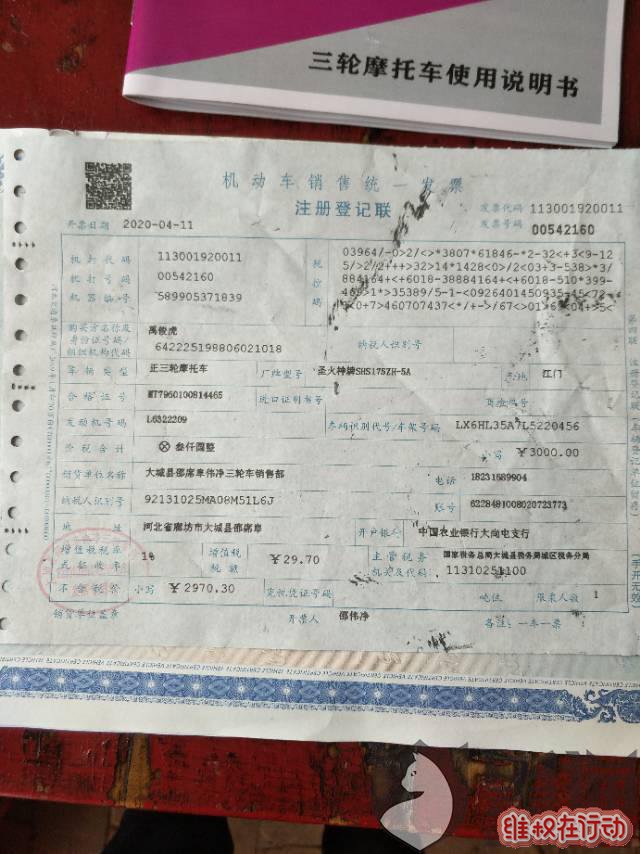 三轮摩托车使用说明书
机动车销售统一发票
注册登记联
发票代码 113001920011
发票号码 00542160
开票日期 2020-04-11
机打代码 113001920011
机打号码 00542160
机器编号 589905371839
税控码
03964/-0>2/<>*3807*61846-*2-32<+3<9-12
购买方名称及身份证号码/组织机构代码
禹俊虎
642225198806021018
纳税人识别号
车辆类型 正三轮摩托车 厂牌型号 圣火神牌SHS175ZH-5A 产地 江门
合格证号 MT7960100814465 进口证明书号 商检单号
发动机号码 L6322209 车辆识别代号/车架号码 LX6HL35A7L5220456
价税合计 ⊗叁仟圆整 小写 ￥3000.00
销货单位名称 大城县邵席阜伟净三轮车销售部 电话 18231689904
纳税人识别号 92131025MA08M51L6J 账号 6228481008020723773
地址 河北省廊坊市大城县邵席阜 开户银行 中国农业银行大尚屯支行
增值税税率或征收率 1% 增值税税额 ￥29.70 主管税务机关及代码 国家税务总局大城县税务局城区税务分局
11310251100
不含税价 小写 ￥2970.30 完税凭证号码 吨位 限乘人数 1
销货单位盖章 开票人 邵伟净 备注：一车一票
维权在行动